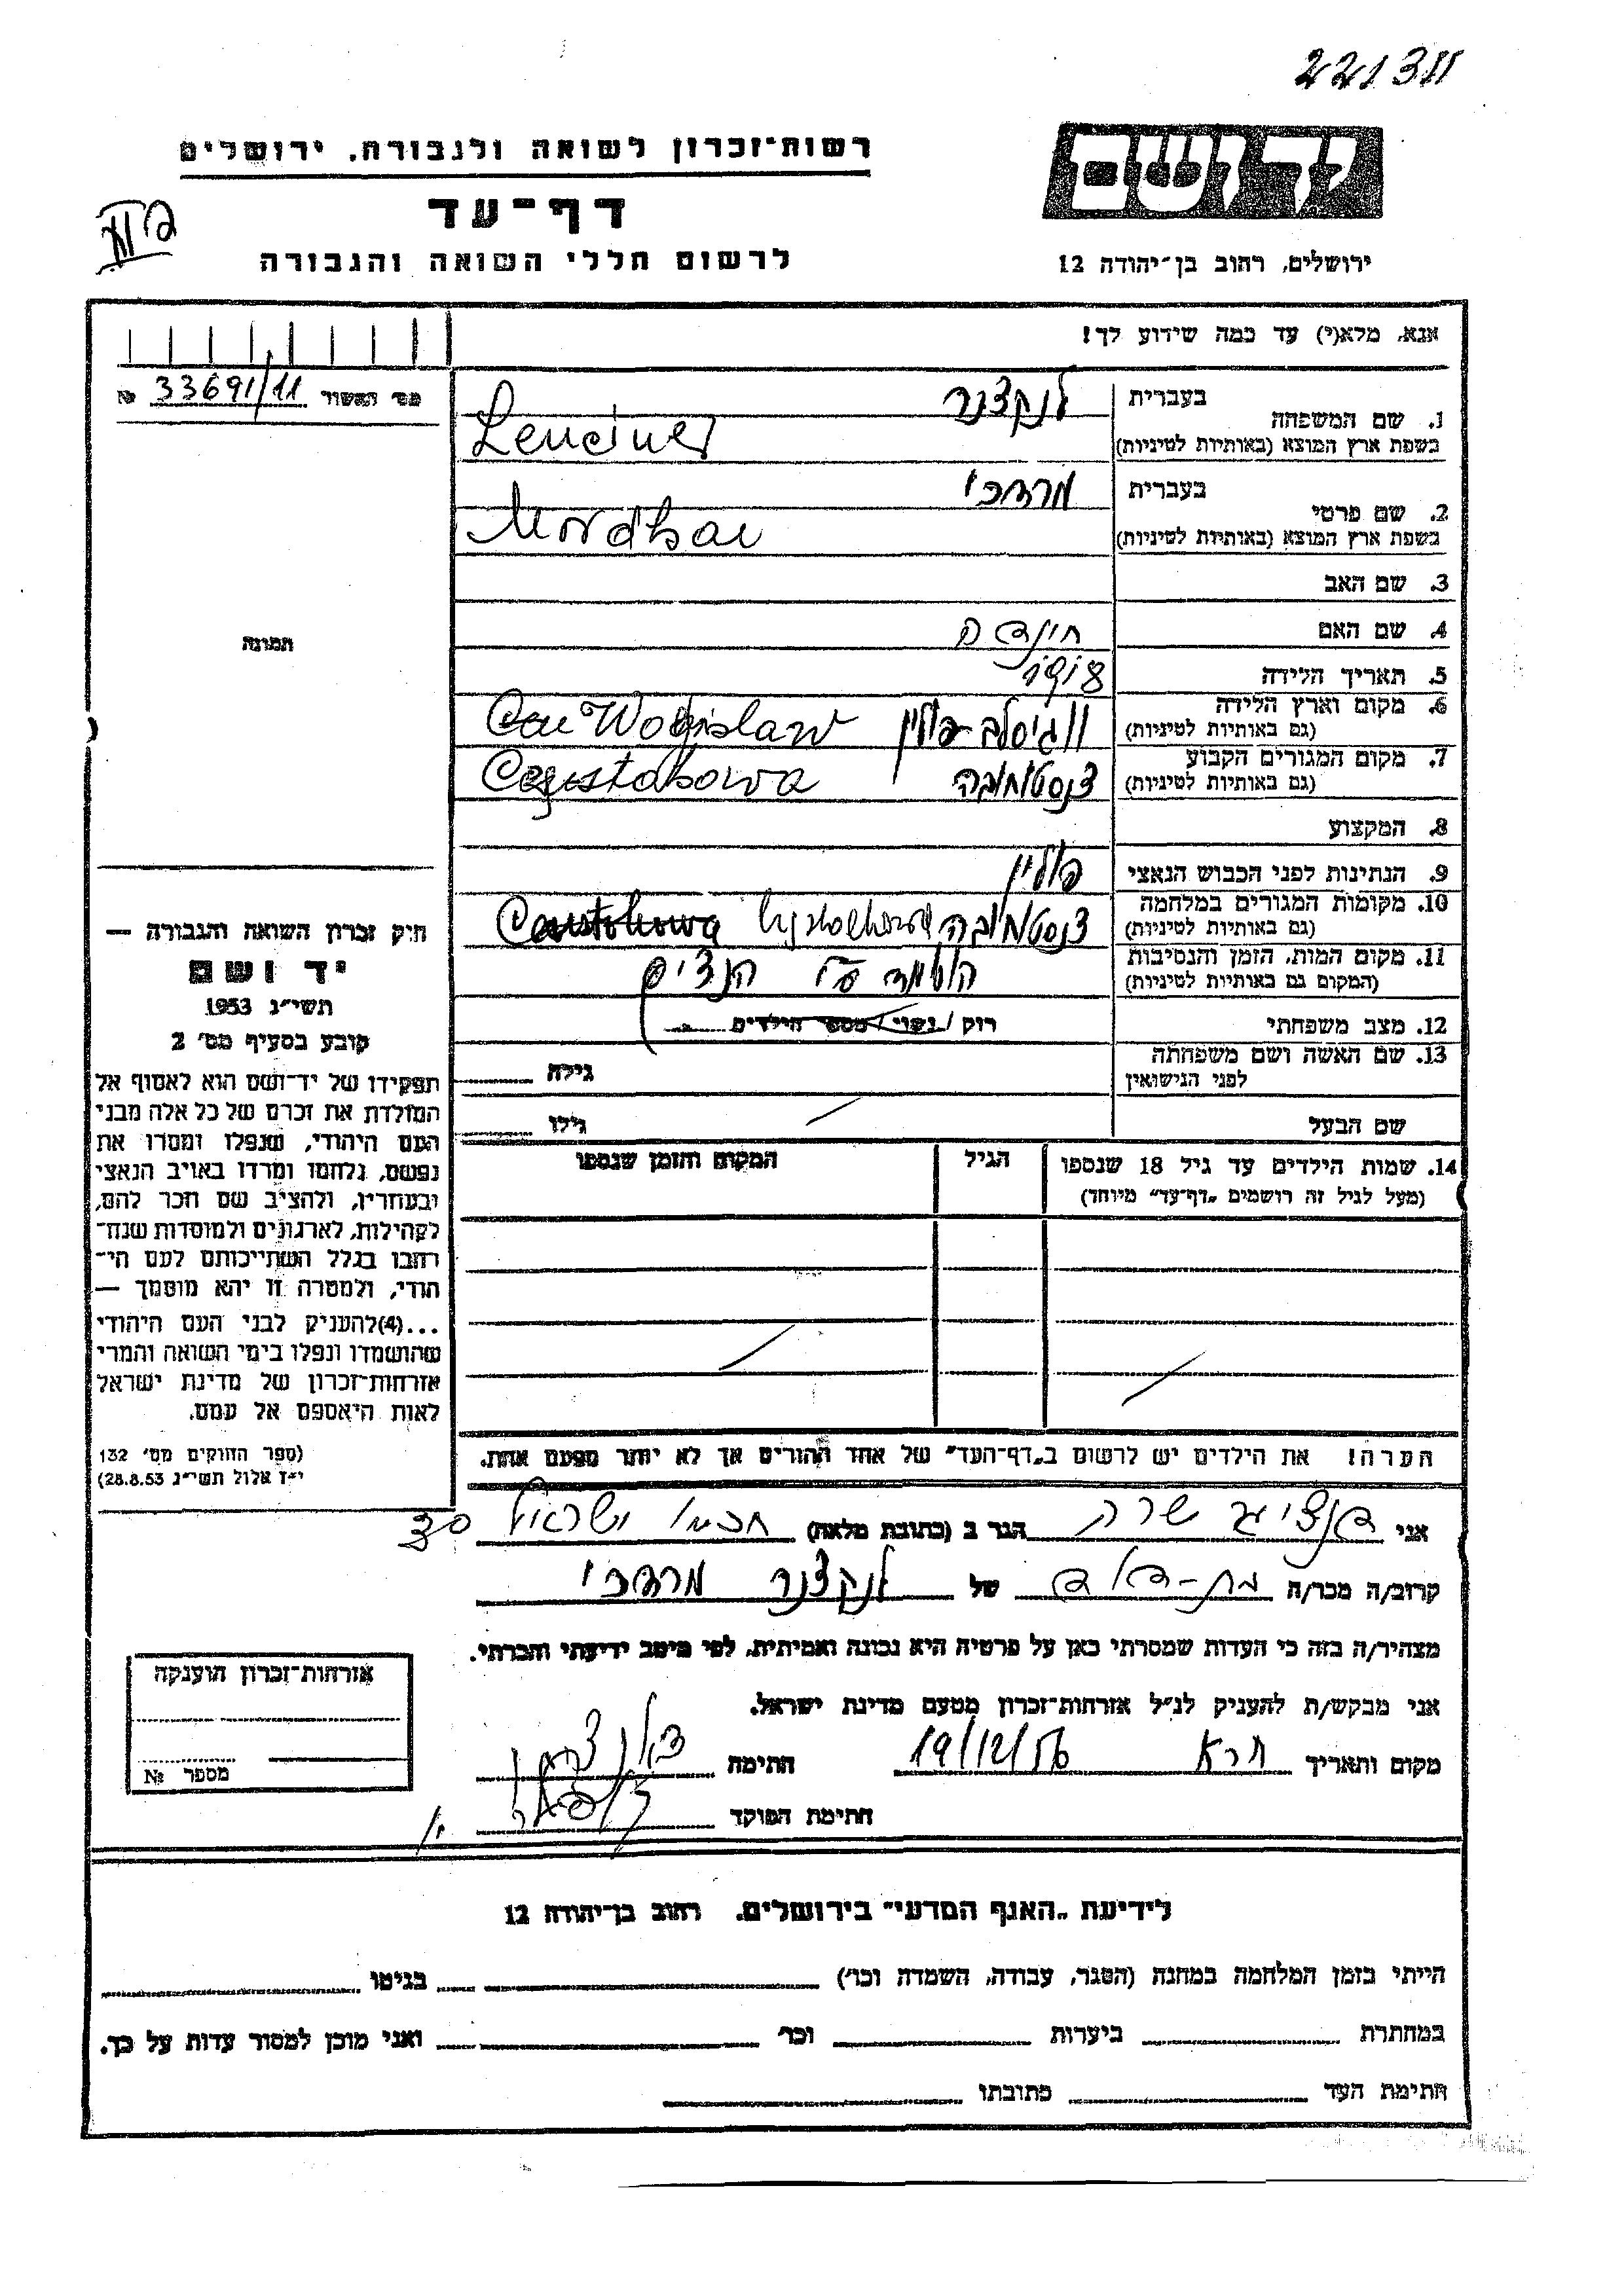 221311
יד ושם
ירושלים, רחוב בן־יהודה 12
רשות־זכרון לשואה ולגבורה. ירושלים
דף־עד
לרשום חללי השואה והגבורה
אנא, מלא(י) עד כמה שידוע לך!
מס' האשור 33691/11 №
תמונה
1. שם המשפחה
בעברית לנקצנר
בשפת ארץ המוצא (באותיות לטיניות) Lenciner
2. שם פרטי
בעברית מרדכי
בשפת ארץ המוצא (באותיות לטיניות) Mordhai
3. שם האב
4. שם האם הינדה
5. תאריך הלידה
6. מקום וארץ הלידה
(גם באותיות לטיניות) פולין Wodzislaw
7. מקום המגורים הקבוע
(גם באותיות לטיניות) צנסטוחובה
8. המקצוע
9. הנתינות לפני הכבוש הנאצי פולין
10. מקומות המגורים במלחמה
(גם באותיות לטיניות) צנסטוחובה
11. מקום המות, הזמן והנסיבות
(המקום גם באותיות לטיניות) הושמד ע"י הנצים
12. מצב משפחתי רוק / נשוי / מספר הילדים
13. שם האשה ושם משפחתה
לפני הנישואין גילה
שם הבעל גילו
14. שמות הילדים עד גיל 18 שנספו הגיל המקום והזמן שנספו
(מעל לגיל זה רושמים "דף־עד" מיוחד)
הערה! את הילדים יש לרשום ב"דף־העד" של אחד ההורים אך לא יותר מפעם אחת.
חיק זכרון השואה והגבורה —
יד ושם
תשי״ג 1953
קובע בסעיף מס' 2
תפקידו של יד־ושם הוא לאסוף אל
המולדת את זכרם של כל אלה מבני
העם היהודי, שנפלו ומסרו את
נפשם, נלחמו ומרדו באויב הנאצי
ובעוזריו, ולהציב שם וזכר להם,
לקהילות, לארגונים ולמוסדות שנח־
רחבו בגלל השתייכותם לעם הי־
הודי, ולמטרה זו יהא מוסמך —
...(4)להעניק לבני העם היהודי
שהושמדו ונפלו בימי השואה והמרי
אזרחות־זכרון של מדינת ישראל
לאות היאספם אל עמם.
(ספר החוקים מס' 132
י״ז אלול תשי״ג 28.8.53)
אני דנציגר שרה הגר ב (כתובת מלאה) ישראל
קרוב/ה מכר/ה בת-דוד של לנקצנר מרדכי
מצהיר/ה בזה כי העדות שמסרתי כאן על פרטיה היא נכונה ואמיתית, לפי מיטב ידיעתי והכרתי.
אני מבקש/ת להעניק לנ״ל אזרחות־זכרון מטעם מדינת ישראל.
מקום ותאריך 19/12/56 חתימה
חתימת הפוקד
אזרחות־זכרון הוענקה
מספר №
לידיעת "האגף המדעי" בירושלים. רחוב בן־יהודה 12
הייתי בזמן המלחמה במחנה (הסגר, עבודה, השמדה וכו') בגיטו
במחתרת ביערות וכו' ואני מוכן למסור עדות על כך.
חתימת העד כתובתו